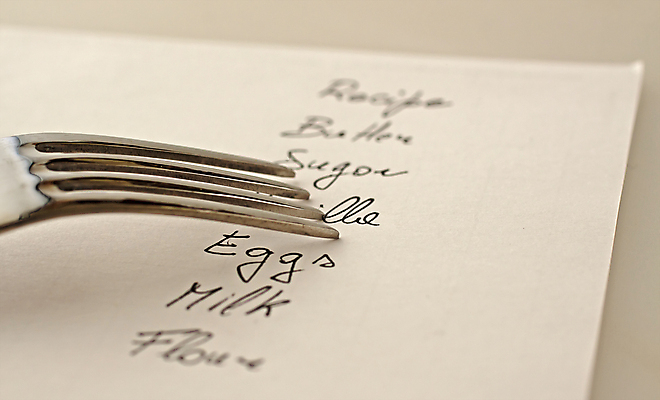 Recipe
Butter
Sugar
ille
Eggs
Milk
Flour